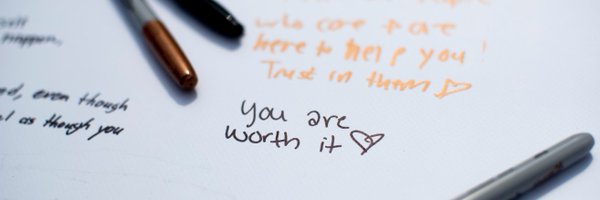 happen,
even though
as though you
who care + are
here to help you!
Trust in them
you are
worth it